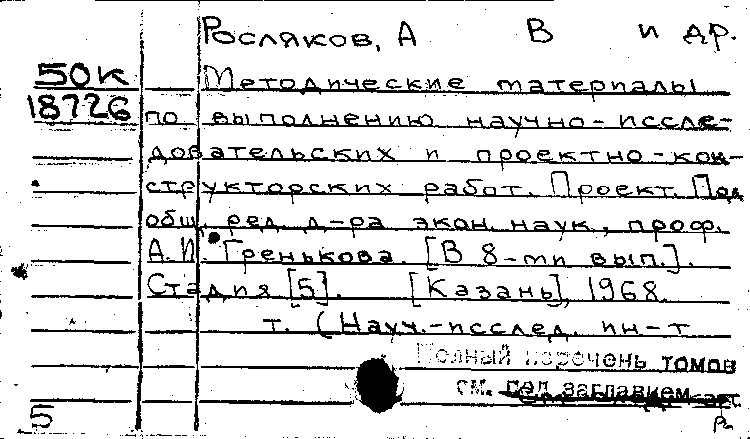 Росляков, А В и др.
50к Методические материалы
18726 по выполнению научно-иссле-
довательских и проектно-кон-
структорских работ. Проект. Под
общ. ред. д-ра экон. наук, проф.
А.И. Гренькова. [В 8-ми вып.].
Стадия [5]. [Казань], 1968.
т. (Науч.-исслед. ин-т
Полный перечень томов
см. под заглавием
5